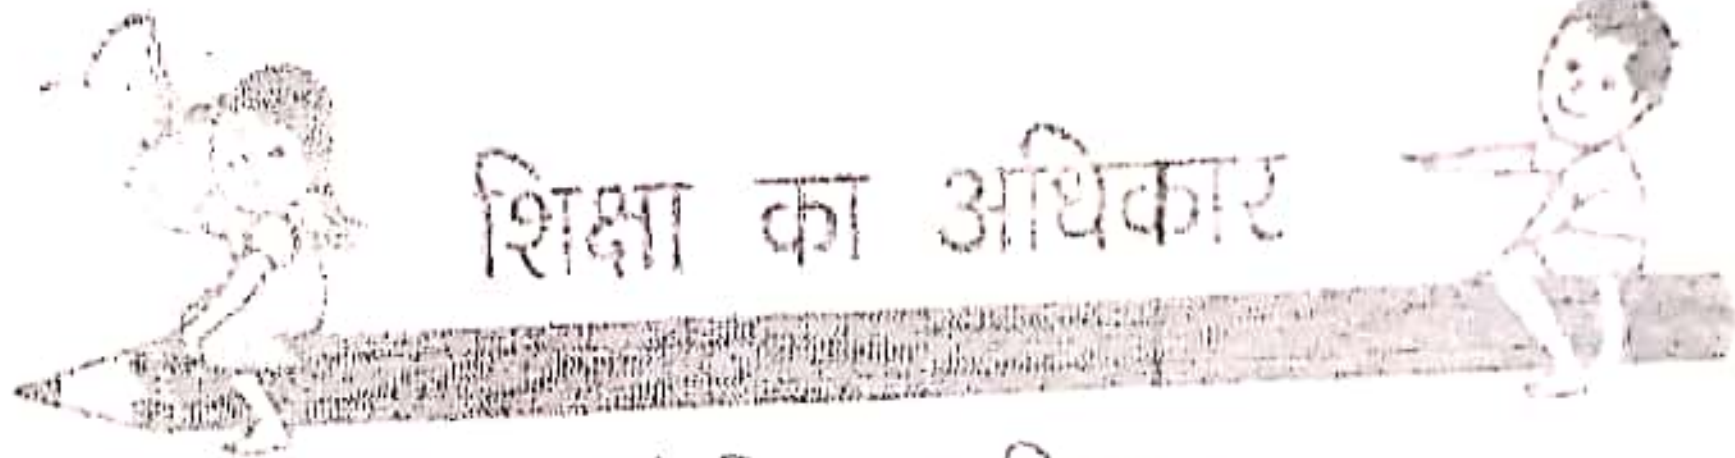 शिक्षा का अधिकार